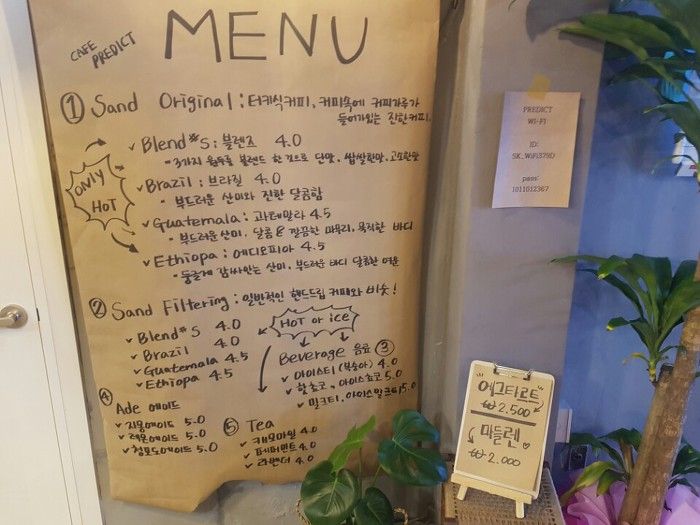 CAFE
PREDICT
MENU
① Sand Original : 터키식커피, 커피속에 커피가루가
들어가있는 진한커피.
ONLY
HOT
✓ Blend#S : 블렌즈 4.0
• 3가지 원두를 블렌드 한 것으로 단맛, 쌉쌀한맛, 고소한맛
✓ Brazil : 브라질 4.0
• 부드러운 산미와 진한 달콤함
✓ Guatemala : 과테말라 4.5
• 부드러운산미, 달콤 & 깔끔한 마무리, 묵직한 바디
✓ Ethiopa : 에디오피아 4.5
• 둥글게 감싸안는 산미, 부드러운 바디 달콤한 여운
② Sand Filtering : 일반적인 핸드드립 커피와 비슷!
✓ Blend#S 4.0
✓ Brazil 4.0
✓ Guatemala 4.5
✓ Ethiopa 4.5
HOT or ice
Beverage 음료 ③
✓ 아이스티 (복숭아) 4.0
✓ 핫초코, 아이스초코 5.0
✓ 밀크티, 아이스밀크티 5.0
④
Ade 에이드
✓ 자몽에이드 5.0
✓ 레몬에이드 5.0
✓ 청포도에이드 5.0
⑤ Tea
✓ 캐모마일 4.0
✓ 페퍼민트 4.0
✓ 라벤더 4.0
PREDICT
WI-FI
ID:
SK_WiFi379D
pass:
1011012367
"에그타르트"
₩2.500
마들렌
₩2.000